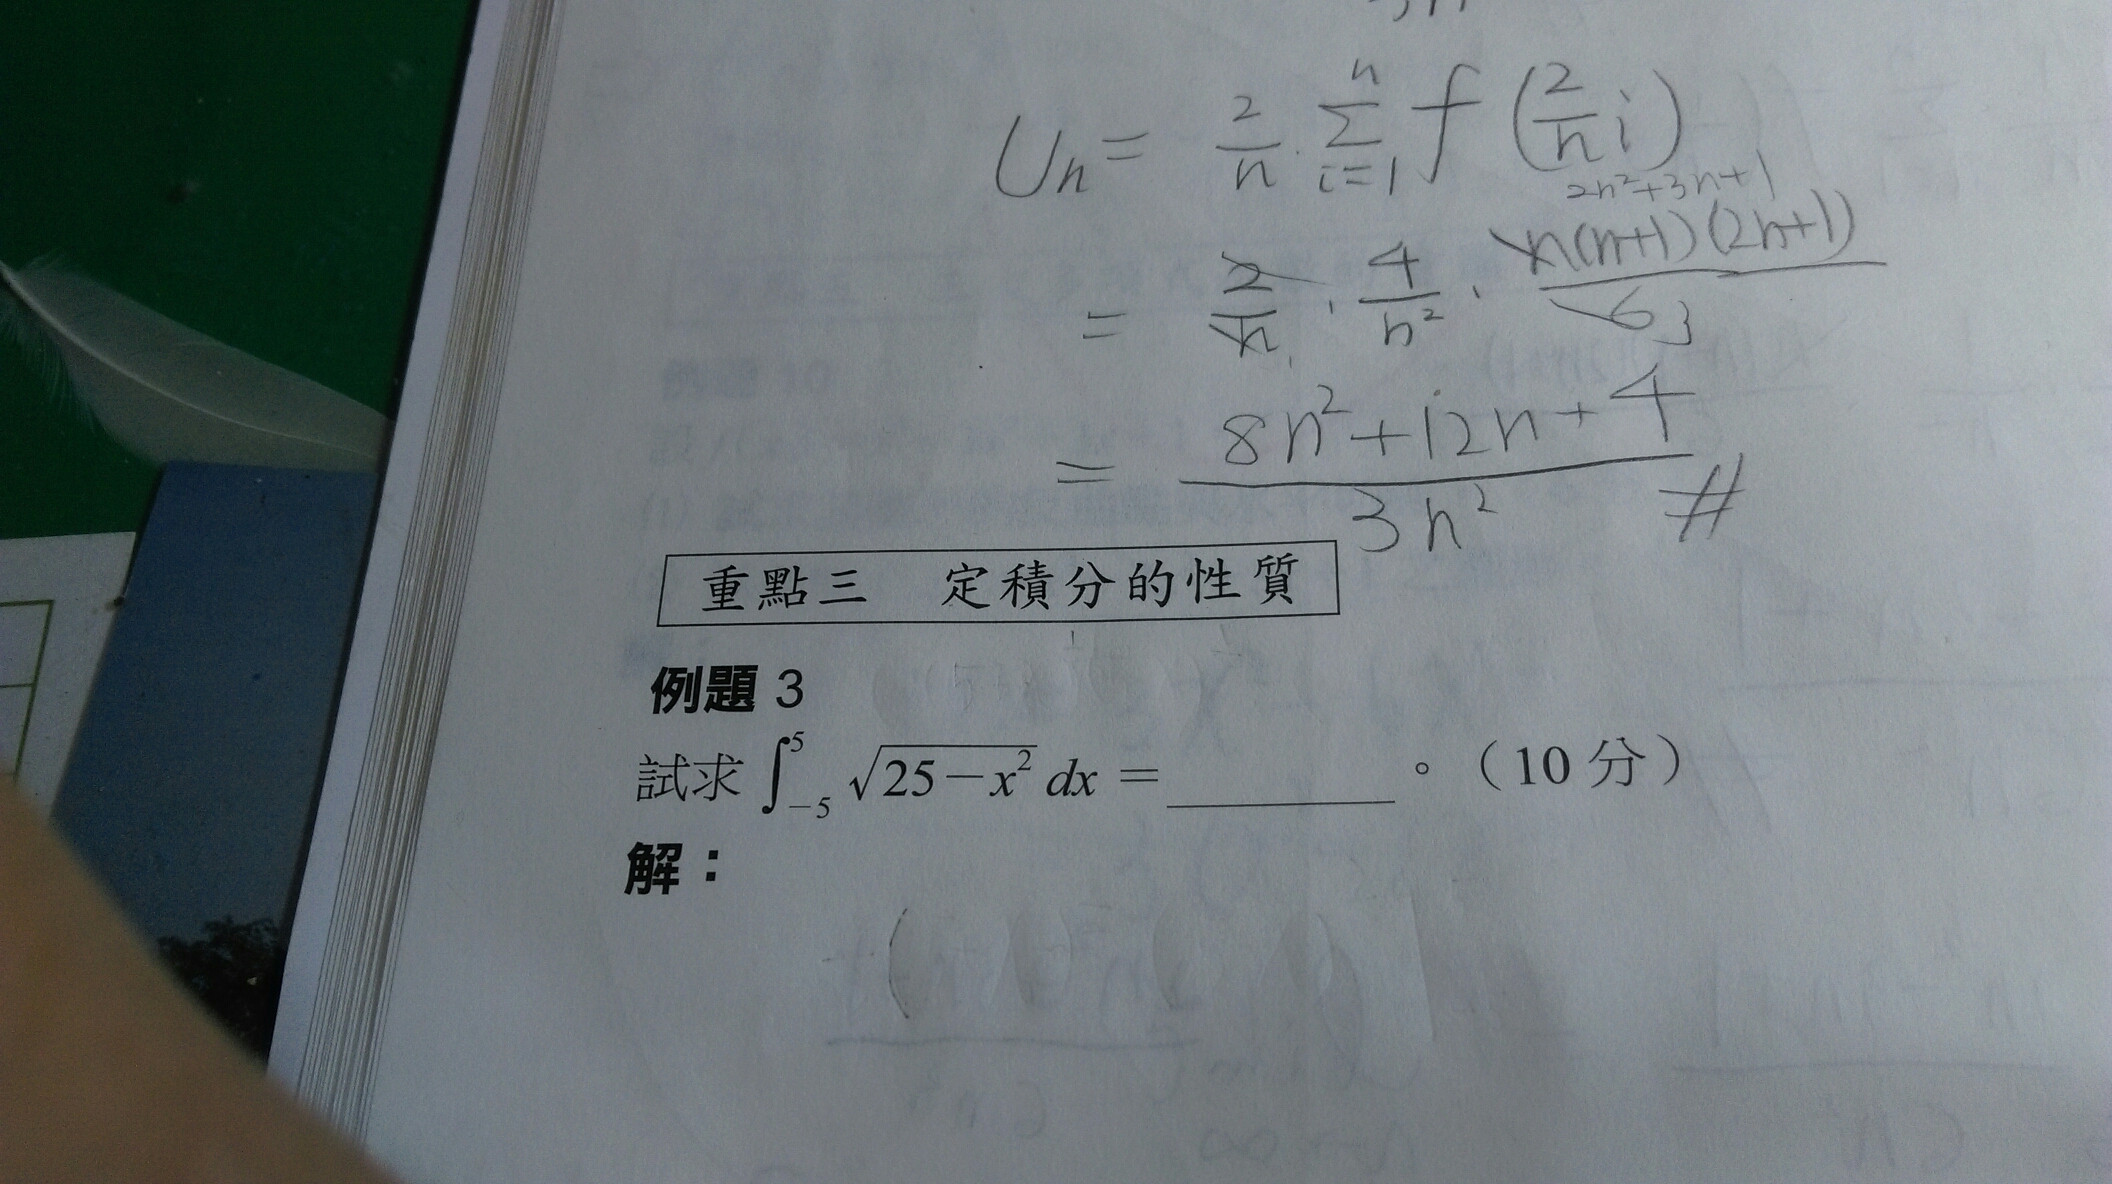 Un = 2/n · Σ_{i=1}^{n} f(2/n i)
2n²+3n+1
= 2/n · 4/n² · n(n+1)(2n+1)/6 3
= 8n²+12n+4/3n² #
重點三 定積分的性質
例題 3
試求 ∫_{-5}^{5} √(25−x²) dx = ________ 。（10 分）
解：